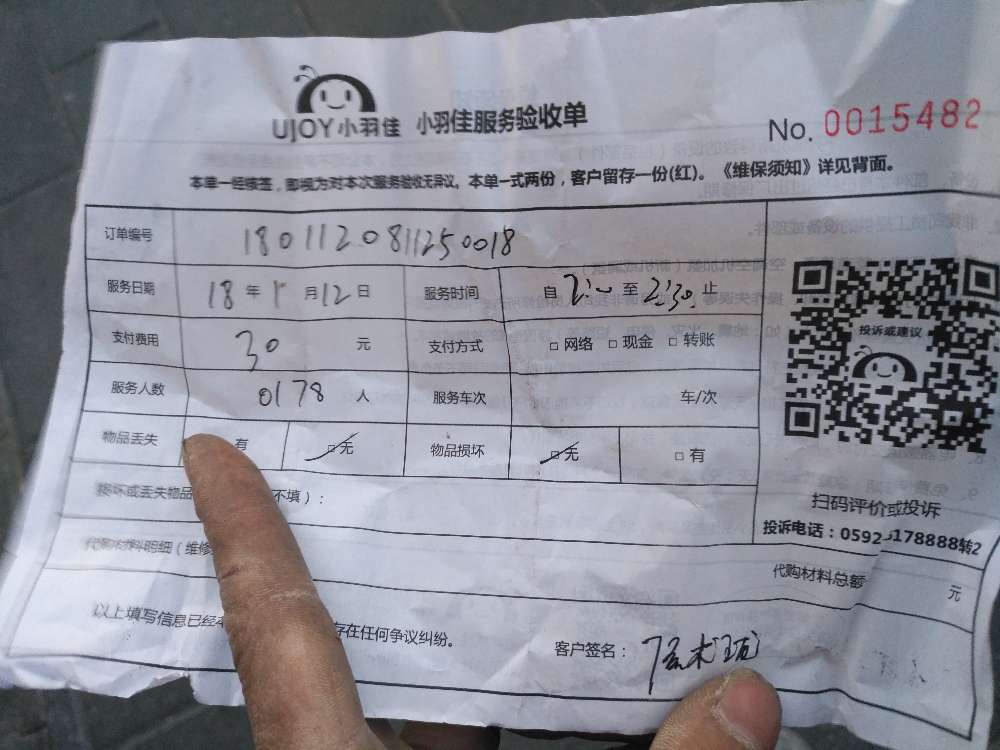 UJOY小羽佳 小羽佳服务验收单
No. 0015482
本单一经核签，即视为对本次服务验收无异议，本单一式两份，客户留存一份(红)。《维保须知》详见背面。
订单编号 1801120811250018
服务日期 18年1月12日 服务时间 自2:00至2:30止
支付费用 30元 支付方式 □网络 □现金 □转账
服务人数 0178人 服务车次 车/次
物品丢失 有 □无 物品损坏 □无 □有
投诉或建议
损坏或丢失物品 不填）：
扫码评价或投诉
投诉电话：0592 5178888转2
代购材料明细（维修
代购材料总额 元
以上填写信息已经 存在任何争议纠纷。
客户签名：